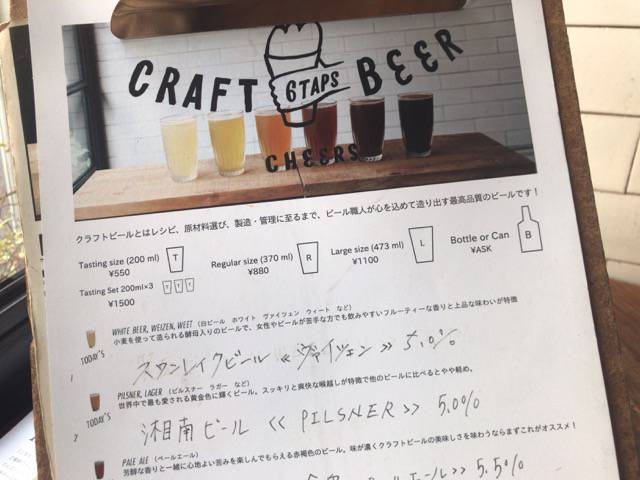 CRAFT 6TAPS BEER
CHEERS
クラフトビールとはレシピ、原材料選び、製造・管理に至るまで、ビール職人が心を込めて造り出す最高品質のビールです！
Tasting size (200 ml) T Regular size (370 ml) R Large size (473 ml) L Bottle or Can B
¥550 ¥880 ¥1100 ¥ASK
Tasting Set 200ml×3 T T T
¥1500
WHITE BEER, WEIZEN, WEET (白ビール ホワイト ヴァイツェン ウィート など)
小麦を使って造られる酵母入りのビールで、女性やビールが苦手な方でも飲みやすいフルーティーな香りと上品な味わいが特徴
TODAY'S
1 スワンレイクビール 《ヴァイツェン》 5.0%
PILSNER, LAGER (ピルスナー ラガー など)
世界中で最も愛される黄金色に輝くビール。スッキリと爽快な喉越しが特徴で他のビールに比べるとやや軽め。
TODAY'S
2 湘南ビール 《PILSNER》 5.0%
PALE ALE (ペールエール)
芳醇な香りと一緒に心地よい苦みを楽しんでもらえる赤褐色のビール。味が濃くクラフトビールの美味しさを味わうならまずこれがオススメ！
TODAY'S
エール》 5.5%